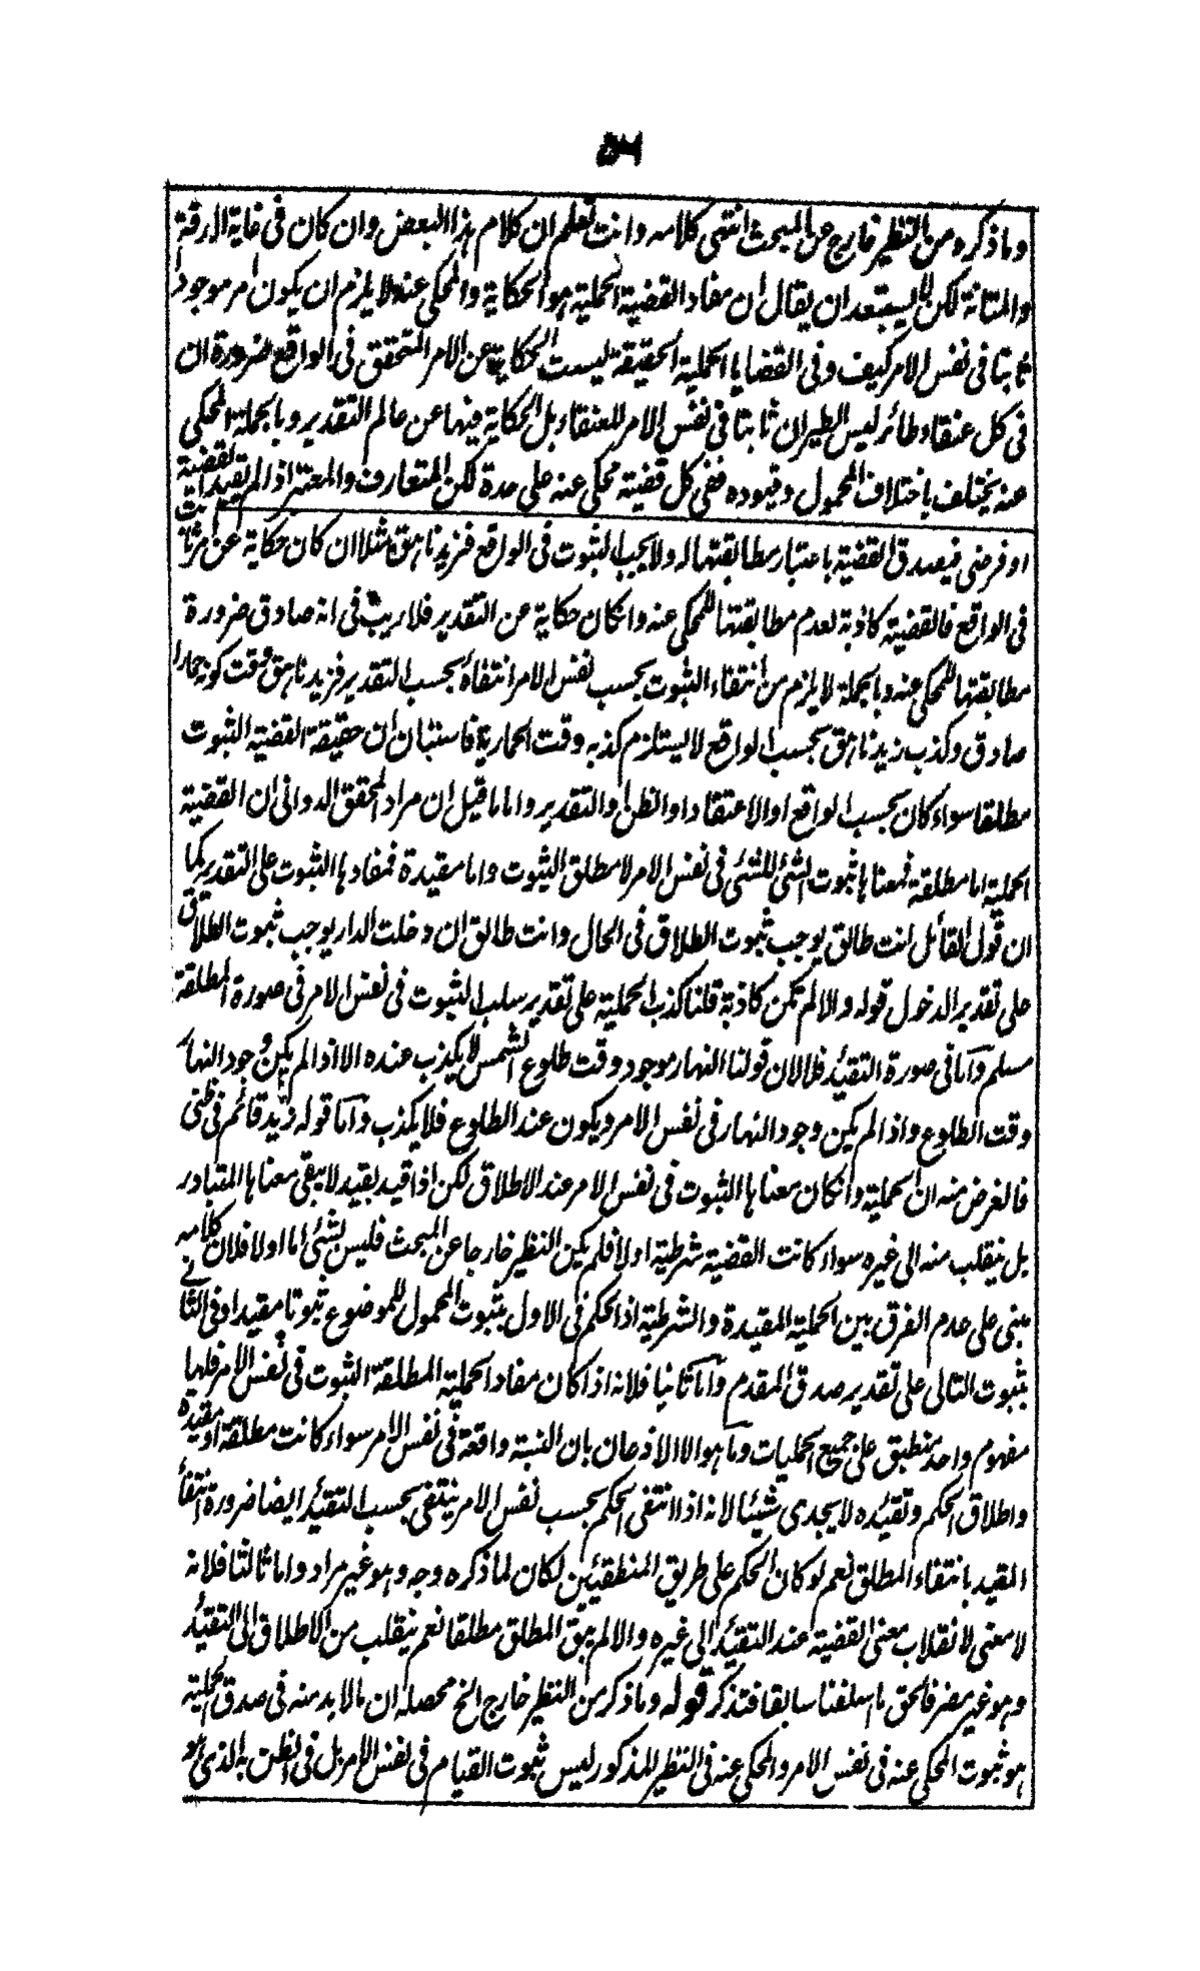 ٥٦
وما ذكره من النظير خارج عن المبحث انتهى كلامه وانت تعلم ان كلام هذا البعض وان كان فى غاية الدقة
والمتانة لكن لا يستبعد ان يقال ان مفاد القضية الحملية هو الحكاية والمحكى عنه لا يلزم ان يكون امر موجودا
ثابتا فى نفس الامر كيف وفى القضايا الحملية الحقيقة ليست الحكاية عن الامر المتحقق فى الواقع ضرورة ان
فى كل عنقاء طائر ليس الطيران ثابتا فى نفس الامر للعنقاء بل الحكاية فيها عن عالم التقدير وبالجملة المحكى
عنه يختلف باختلاف المحمول وقيوده ففى كل قضية محكى عنه على حدة لكن المتعارف والمعتبر اذا لم تقيد القضية
او فرضى فيصدق القضية باعتبار مطابقتها له ولا يجب الثبوت فى الواقع فزيد ناهق مثلا ان كان حكاية عن
فى الواقع فالقضية كاذبة لعدم مطابقتها للمحكى عنه وانكان حكاية عن التقدير فلا ريب فى انه صادق ضرورة
مطابقتها للمحكى عنه وبالجملة لا يلزم من انتفاء الثبوت بحسب نفس الامر انتفاؤه بحسب التقدير فزيد ناهق وقت كونه حمارا
صادق وكذب زيد ناهق بحسب الواقع لا يستلزم كذبه وقت الحمارية فاستبان ان حقيقة القضية الثبوت
مطلقا سواء كان بحسب الواقع او الاعتقاد او الظن او التقدير واما ما قيل ان مراد المحقق الدوانى ان القضية
الحملية اما مطلقة فمعناها ثبوت الشئ للشئ فى نفس الامر لا مطلق الثبوت واما مقيدة فمفادها الثبوت على التقدير كما
ان قول القائل انت طالق يوجب ثبوت الطلاق فى الحال وانت طالق ان دخلت الدار يوجب ثبوت الطلاق
على تقدير الدخول قوله والا لم تكن كاذبة قلنا كذب الحملية على تقدير سلب الثبوت فى نفس الامر فى صورة المطلقة
مسلم واما فى صورة التقييد فلا لان قولنا النهار موجود وقت طلوع الشمس لا يكذب عنده الا اذا لم يكن وجود النهار
وقت الطلوع واذا لم يكن وجود النهار فى نفس الامر ويكون عند الطلوع فلا يكذب واما قوله زيد قائم فى ظنى
فالغرض منه ان الحملية وانكان معناها الثبوت فى نفس الامر عند الاطلاق لكن اذا قيد بقيد لا يبقى معناها المتبادر
بل ينقلب منه الى غيره سواء كانت القضية شرطية اولا فلم يكن النظير خارجا عن المبحث فليس بشئ اما اولا فلان كلامه
مبنى على عدم الفرق بين الحملية المقيدة والشرطية اذ الحكم فى الاول بثبوت المحمول للموضوع ثبوتا مقيدا وفى الثانى
بثبوت التالى على تقدير صدق المقدم واما ثانيا فلانه اذا كان مفاد الحملية المطلقة الثبوت فى نفس الامر فلها
مفهوم واحد منطبق على جميع الحمليات وما هو الا الاذعان بان النسبة واقعة فى نفس الامر سواء كانت مطلقة او مقيدة
واطلاق الحكم وتقييده لا يجدى شيئا لانه اذا انتفى الحكم بحسب نفس الامر ينتفى بحسب التقييد ايضا ضرورة انتفاء
المقيد بانتفاء المطلق نعم لو كان الحكم على طريق المنطقيين لكان لما ذكره وجه وهو غير مراد واما ثالثا فلانه
لا معنى لانقلاب معنى القضية عند التقييد الى غيره والا لم يبق المطلق مطلقا نعم ينقلب من الاطلاق الى التقييد
وهو غير مضر فالحق ما اسلفنا سابقا فتذكر قوله وما ذكر من النظير خارج الخ محصله ان ما لابد منه فى صدق الحملية
هو ثبوت المحكى عنه فى نفس الامر والمحكى عنه فى النظير المذكور ليس ثبوت القيام فى نفس الامر بل فى الظن به الذى هو